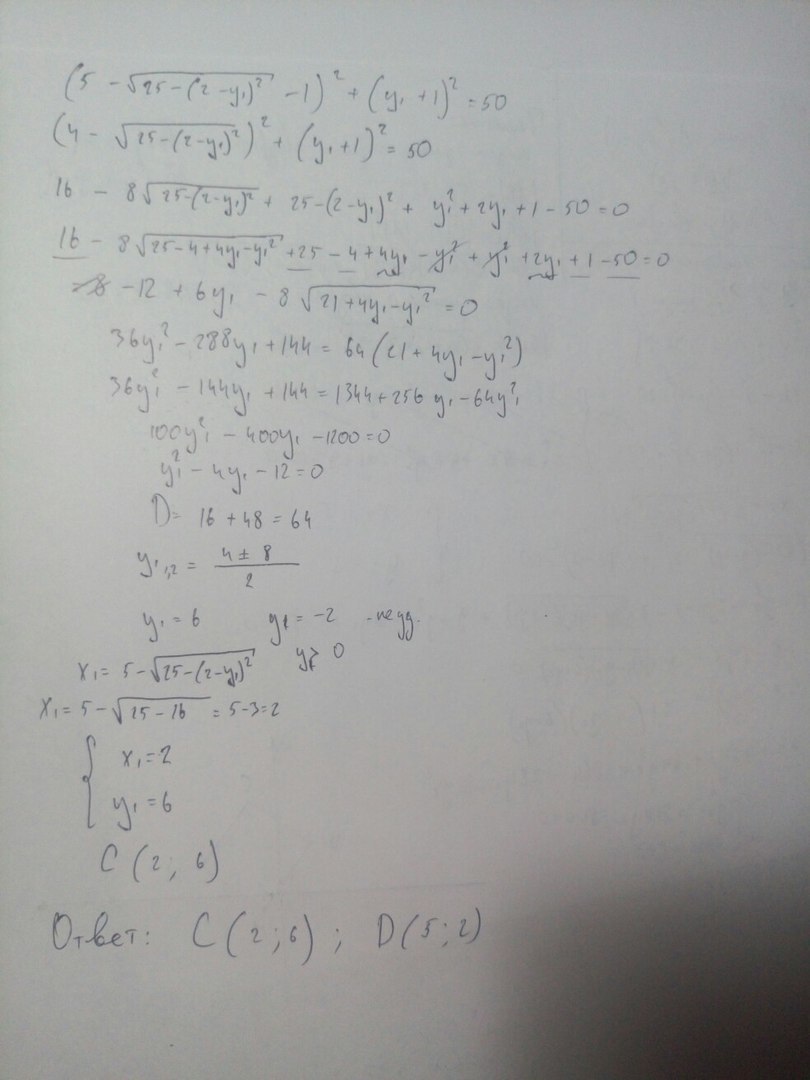 (5 - √25-(2-y₁)² - 1)² + (y₁ + 1)² = 50
(4 - √25-(2-y₁)²)² + (y₁+1)² = 50
16 - 8√25-(2-y₁)² + 25-(2-y₁)² + y₁² + 2y₁ + 1 - 50 = 0
16 - 8√25-4+4y₁-y₁² + 25 - 4 + 4y₁ - y₁² + y₁² + 2y₁ + 1 - 50 = 0
-12 + 6y₁ - 8√21+4y₁-y₁² = 0
36y₁² - 288y₁ + 144 = 64(21 + 4y₁ - y₁²)
36y₁² - 144y₁ + 144 = 1344 + 256y₁ - 64y₁²
100y₁² - 400y₁ - 1200 = 0
y₁² - 4y₁ - 12 = 0
D = 16 + 48 = 64
y₁,₂ = (4 ± 8)/2
y₁ = 6 y₁ = -2 - не уд.
x₁ = 5 - √25-(2-y₁)² y₁> 0
x₁ = 5 - √25-16 = 5-3=2
{ x₁ = 2
y₁ = 6
C (2; 6)
Ответ: C(2;6); D(5;2)